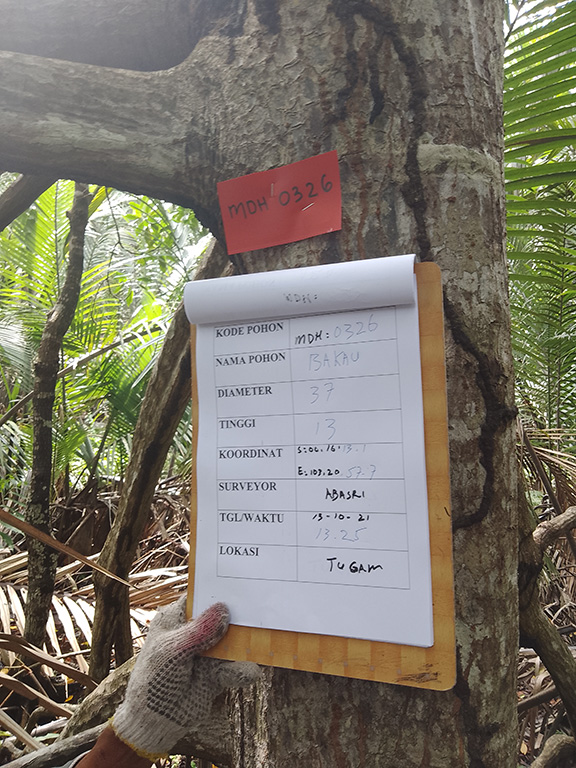 MDH 0326
MDH:
KODE POHON MDH: 0326
NAMA POHON BAKAU
DIAMETER 37
TINGGI 13
KOORDINAT S=00.16.13.1
E=109.20.57.7
SURVEYOR ABASRI
TGL/WAKTU 13-10-21
13.25
LOKASI TUGAM